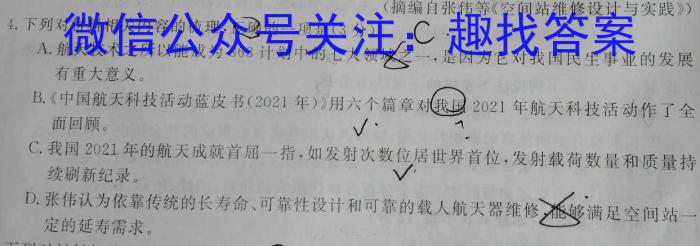 (摘编自张伟等《空间站维修设计与实践》)
微信公众号关注：趣找答案
4.下列对
C
A.航天技术之所以能成为863计划中的七大领域之一,是因为它对我国民生事业的发展
有重大意义。
B.《中国航天科技活动蓝皮书(2021年)》用六个篇章对我国2021年航天科技活动作了全
面回顾。
C.我国2021年的航天成就首屈一指,如发射次数位居世界首位,发射载荷数量和质量持
续刷新纪录。
D.张伟认为依靠传统的长寿命、可靠性设计和可靠的载人航天器维修,能够满足空间站一
定的延寿需求。